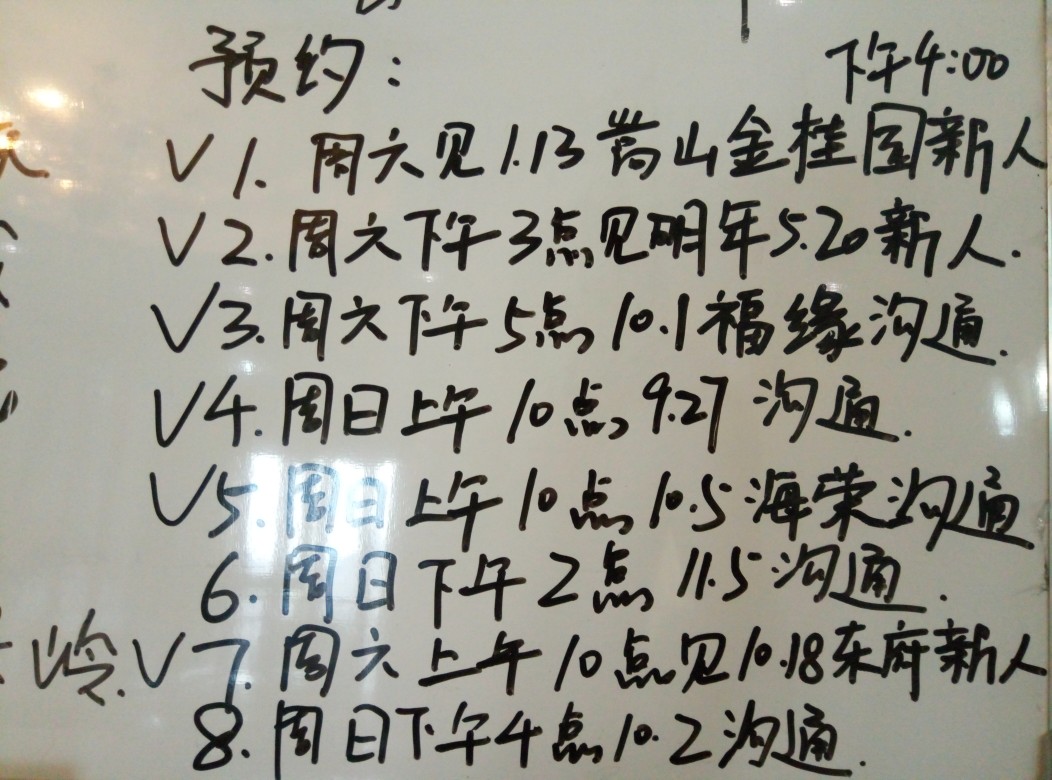 预约: 下午4:00
V 1. 周六见1.13嵩山金桂园新人
V 2. 周六下午3点见明年5.20新人.
V 3. 周六下午5点10.1福缘沟通.
V 4. 周日上午10点9.27沟通.
V 5. 周日上午10点10.5海荣沟通
6. 周日下午2点11.5沟通.
V 7. 周六上午10点见10.18东府新人
8. 周日下午4点10.2沟通.